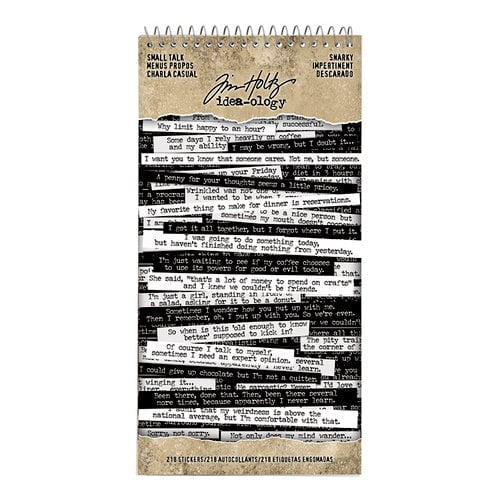 SMALL TALK
MENUS PROPOS
CHARLA CASUAL
SNARKY
IMPERTINENT
DESCARADO
Tim Holtz
idea-ology
successful.
Why limit happy to an hour?
Some days I rely heavily on coffee
and my ability
I may be wrong, but I doubt it...
I want you to know that someone cares. Not me, but someone.
up your Friday
diet in 3 hours
A penny for your thoughts seems a little pricey.
Wrinkled was not one of
I wanted to be when I
My favorite thing to make for dinner is reservations.
to be a nice person but
sometimes my mouth doesn't
I got it all together, but I forgot where I put it.
I was going to do something today,
but haven't finished doing nothing from yesterday.
I'm just waiting to see if my coffee chooses
to use its powers for good or evil today.
She said, "that's a lot of money to spend on crafts"
and I knew we couldn't be friends.
I'm just a girl, standing in
a salad, asking for it to be a donut.
Sometimes, I wonder how you put up with me.
Then I remember, oh, I put up with you. So we're even.
So when is this "old enough to know
better" supposed to kick in?
The pity train
the corner of
Of course I talk to myself,
sometimes I need an expert opinion.
several
I never learn.
I could give up chocolate but I'm not a quitter.
winging it...
I'd love
Been there, done that. Then, been there several
more times, because apparently I never learn.
I admit that my weirdness is above the
national average, but I'm comfortable with that.
Sorry, not sorry.
Not only does my mind wander...
218 STICKERS/218 AUTOCOLLANTS/218 ETIQUETAS ENGOMADAS